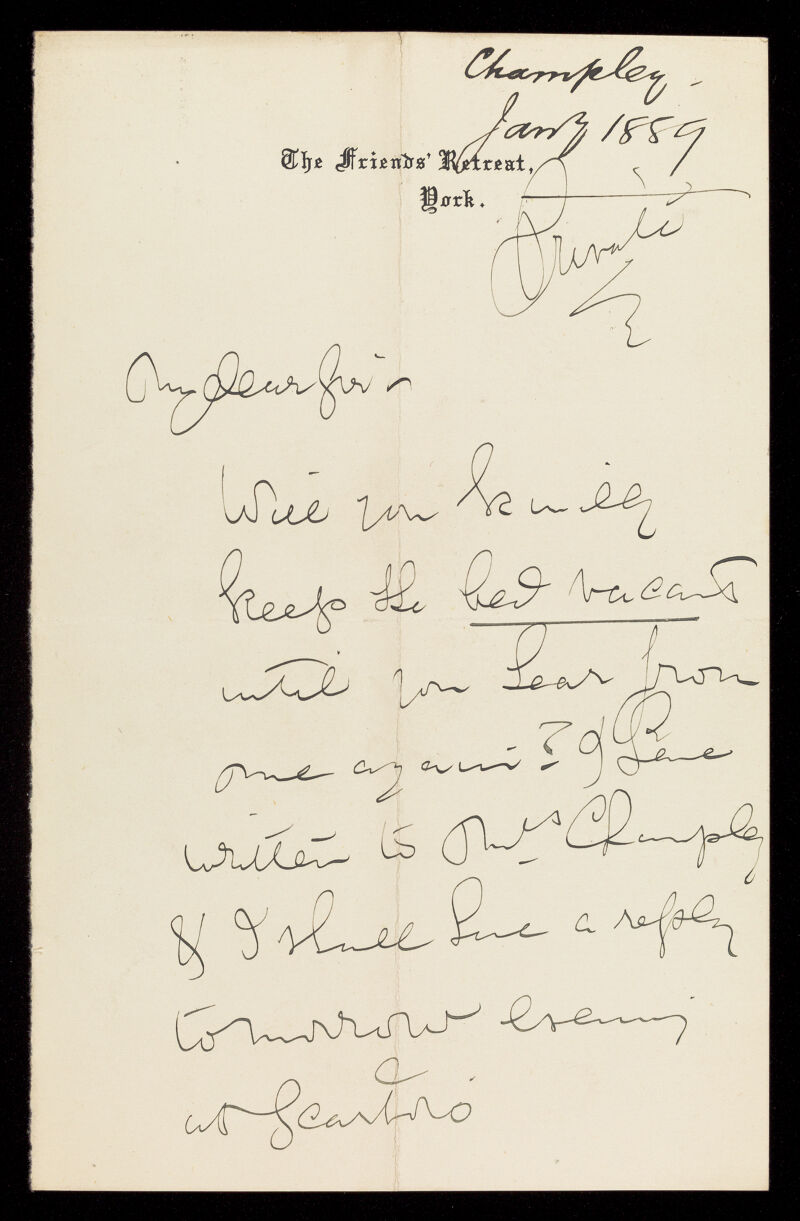 Champley -
Jany 1889
The Friends' Retreat,
York.
Private
My dear Sir -
Will you kindly
keep the bed vacant
until you hear from
me again? I have
written to Mrs Champley
& I shall have a reply
tomorrow evening
at Scarbro'